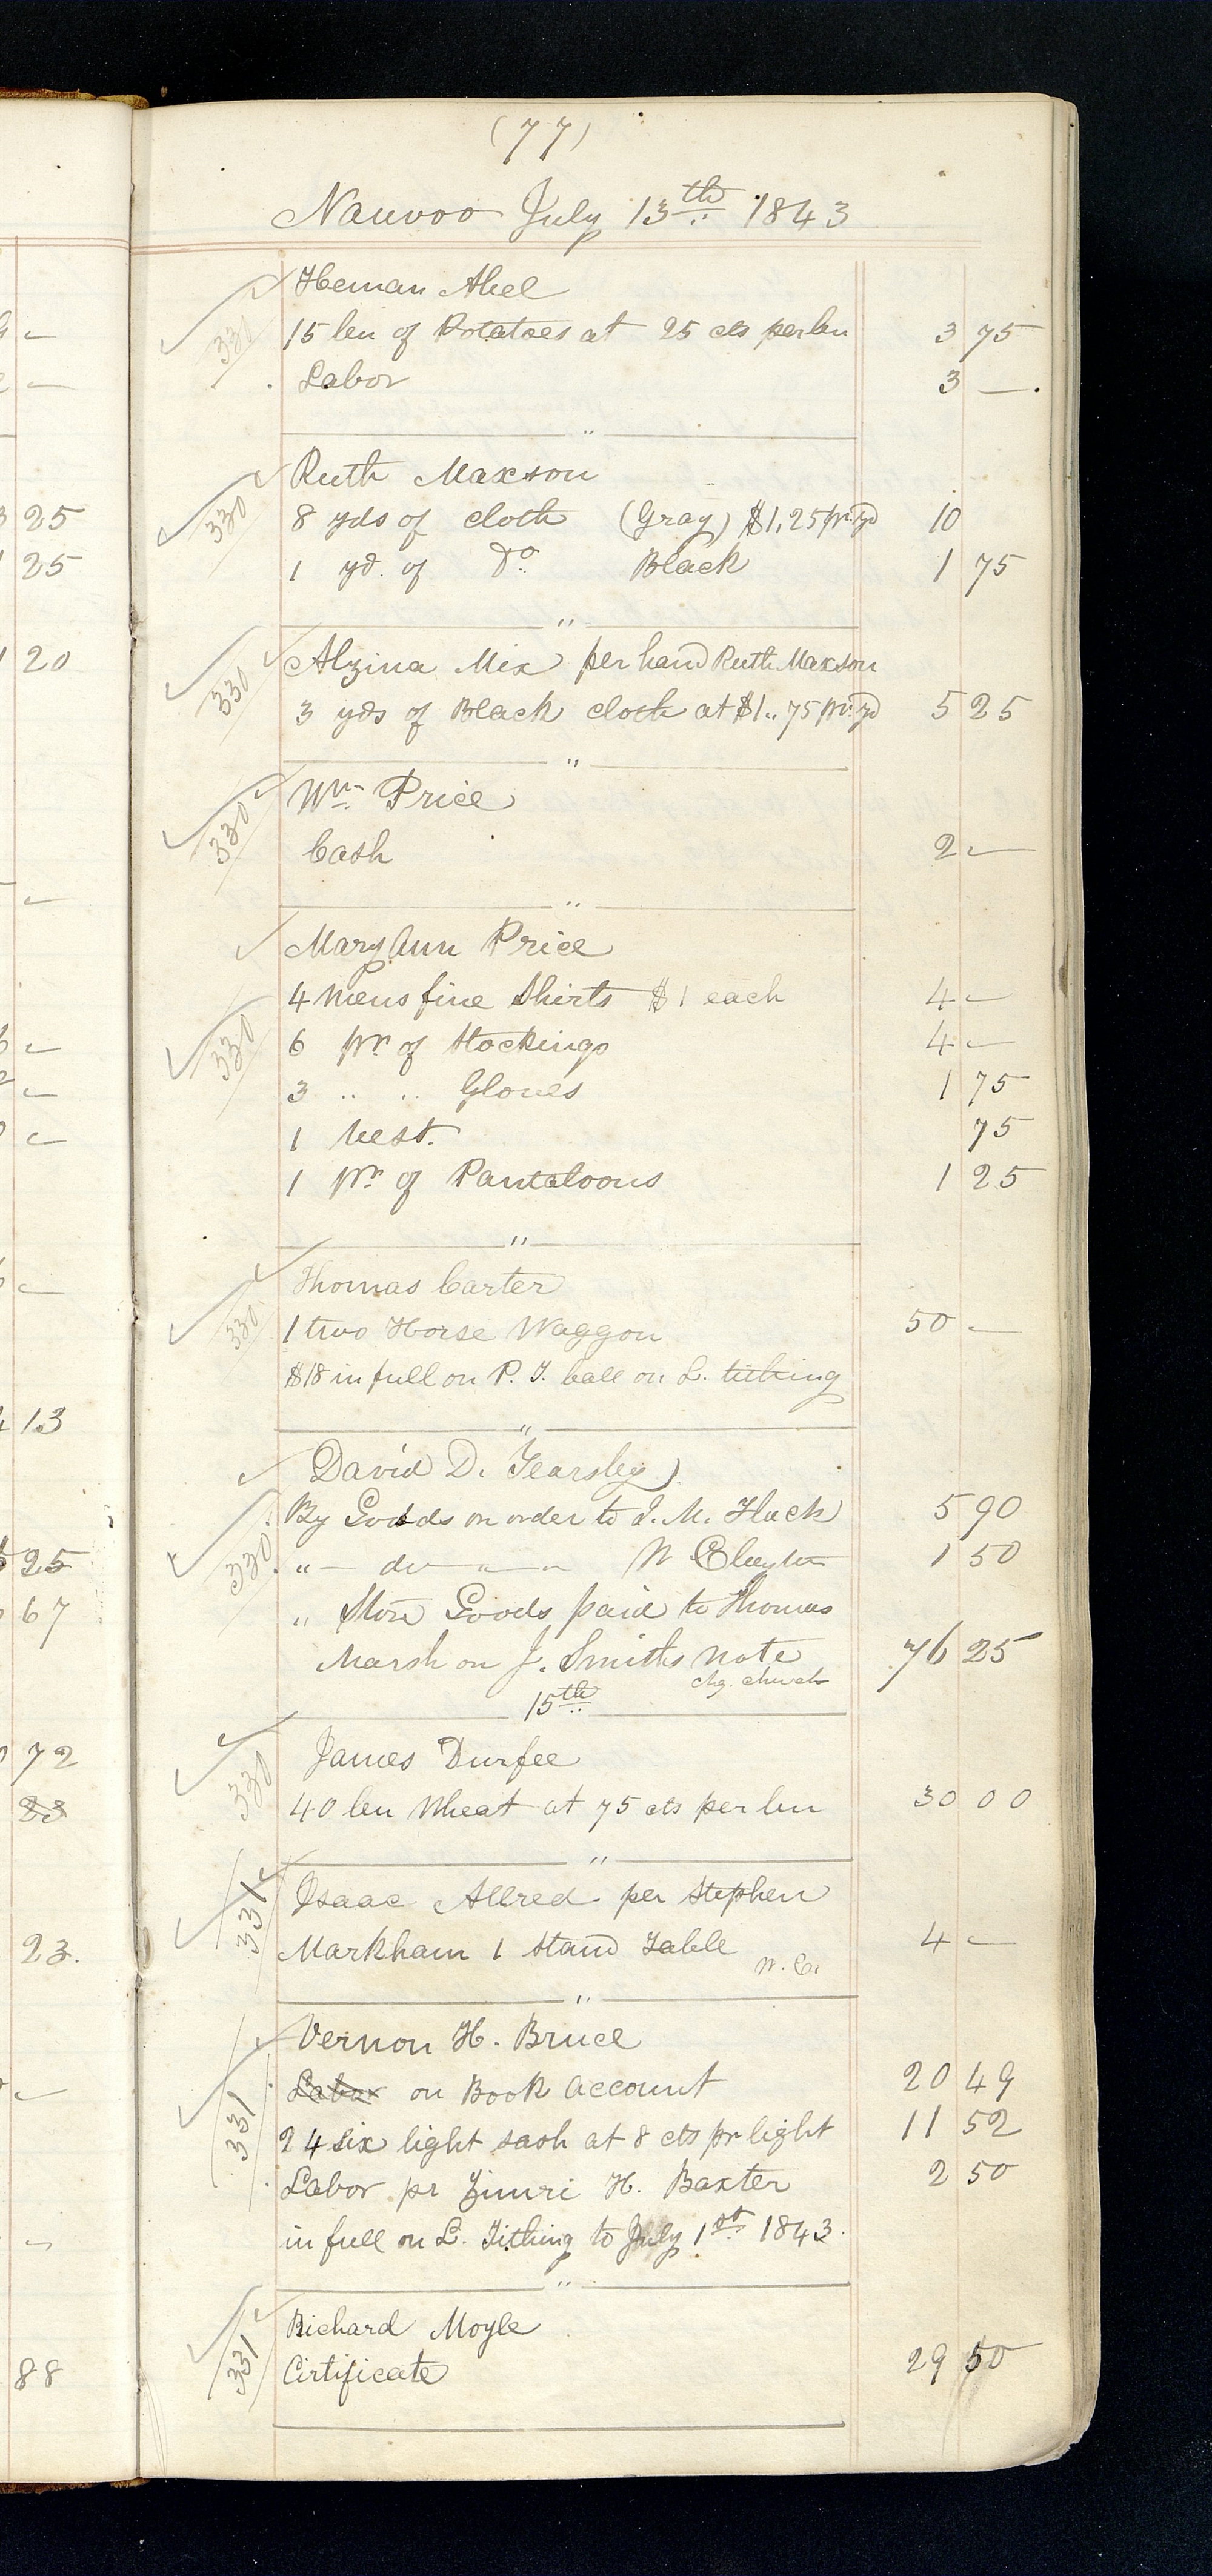 (77)
Nauvoo July 13th 1843
Heman Abel
330 15 bu of Potatoes at 25 cts per bu 3 75
Labor 3 —
"
Ruth Maxson
330 8 yds of cloth (Gray) $1,25 pr yd 10
1 yd. of Do Black 1 75
"
Alzina Mix per hand Ruth Maxson
330 3 yds of Black cloth at $1..75 pr yd 5 25
"
Wm Price
330 Cash 2 —
"
Mary Ann Price
4 mens fine Shirts $1 each 4 —
330 6 pr of Stockings 4 —
3 " " Gloves 1 75
1 Vest. 75
1 pr of Pantaloons 1 25
"
Thomas Carter
330 1 two Horse Waggon 50 —
$18 in full on P. T. ball on L. tithing
"
David D. Yearsley
By Goods on order to J. M. Flack 5 90
330 " — do — " — " W Clayton 1 50
" Store Goods paid to Thomas
Marsh on J. Smiths note 76 25
chg. church
15th
James Durfee
330 40 bu Wheat at 75 cts per bu 30 00
"
Isaac Allred per Stephen
331 Markham 1 Stand Table 4 —
W. C.
"
Vernon H. Bruce
Labor on Book account 20 49
331 24 six light sash at 8 cts pr light 11 52
Labor pr Zimri H. Baxter 2 50
in full on L. Tithing to July 1st 1843.
"
Richard Moyle
331 Cirtificate 29 50
25
25
20
13
25
67
72
83
23.
88